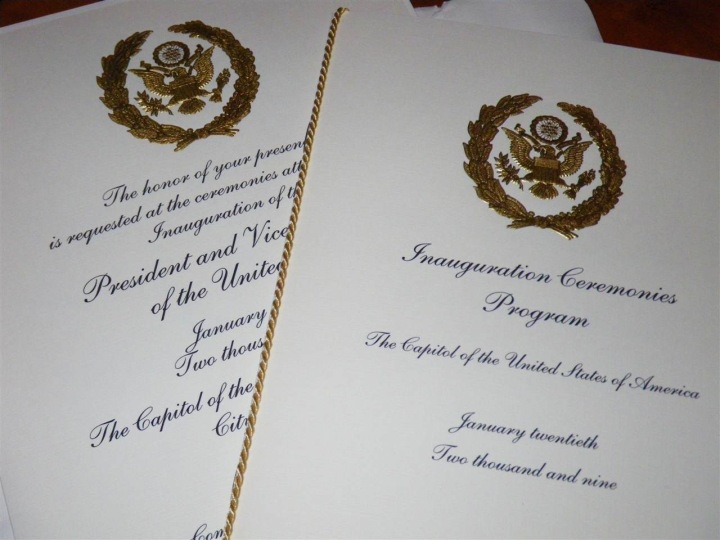 The honor of your presen
is requested at the ceremonies att
Inauguration of t
President and Vice
of the United
January
Two thous
The Capitol of the
City
Com
Inauguration Ceremonies
Program
The Capitol of the United States of America
January twentieth
Two thousand and nine